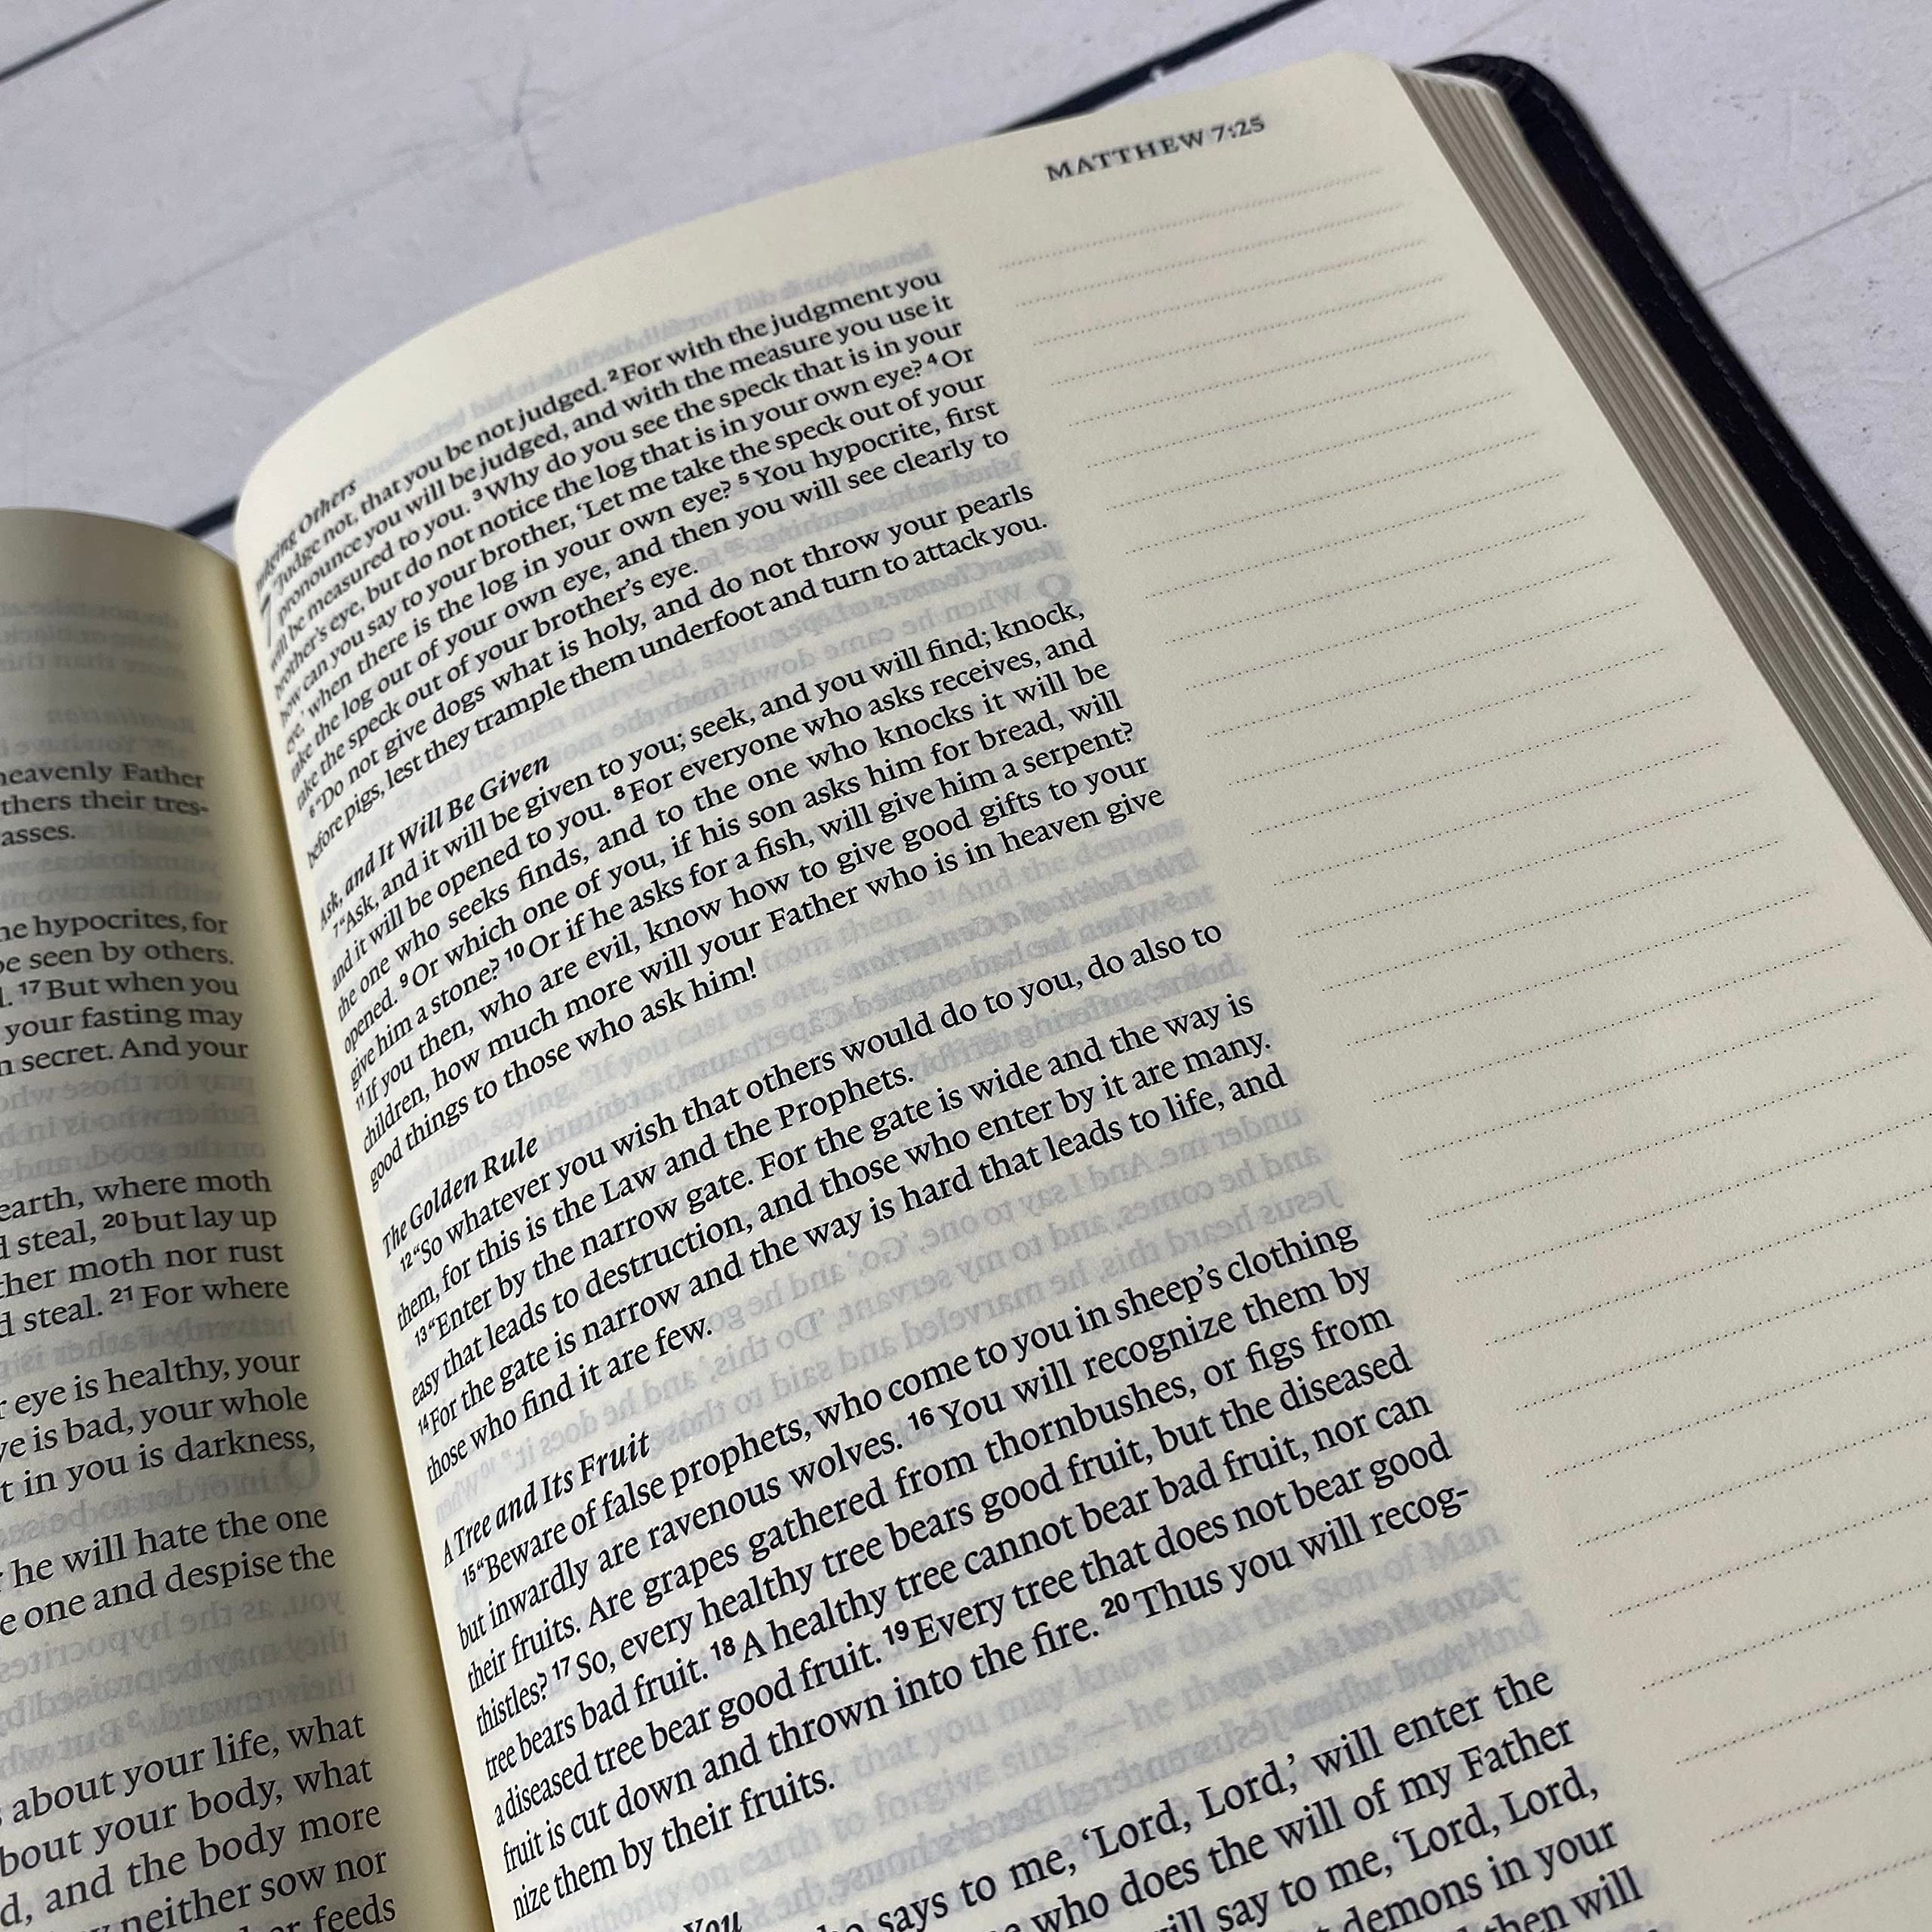 heavenly Father
thers their tres-
asses.
he hypocrites, for
be seen by others.
17 But when you
your fasting may
n secret. And your
earth, where moth
d steal, 20 but lay up
ther moth nor rust
d steal. 21 For where
eye is healthy, your
ye is bad, your whole
t in you is darkness,
he will hate the one
e one and despise the
about your life, what
bout your body, what
d, and the body more
neither sow nor
feeds
MATTHEW 7:25
Judging Others
7 “Judge not, that you be not judged. 2 For with the judgment you
pronounce you will be judged, and with the measure you use it
will be measured to you. 3 Why do you see the speck that is in your
brother’s eye, but do not notice the log that is in your own eye? 4 Or
how can you say to your brother, ‘Let me take the speck out of your
eye,’ when there is the log in your own eye? 5 You hypocrite, first
take the log out of your own eye, and then you will see clearly to
take the speck out of your brother’s eye.
6 “Do not give dogs what is holy, and do not throw your pearls
before pigs, lest they trample them underfoot and turn to attack you.
Ask, and It Will Be Given
7 “Ask, and it will be given to you; seek, and you will find; knock,
and it will be opened to you. 8 For everyone who asks receives, and
the one who seeks finds, and to the one who knocks it will be
opened. 9 Or which one of you, if his son asks him for bread, will
give him a stone? 10 Or if he asks for a fish, will give him a serpent?
11 If you then, who are evil, know how to give good gifts to your
children, how much more will your Father who is in heaven give
good things to those who ask him!
The Golden Rule
12 “So whatever you wish that others would do to you, do also to
them, for this is the Law and the Prophets.
13 “Enter by the narrow gate. For the gate is wide and the way is
easy that leads to destruction, and those who enter by it are many.
14 For the gate is narrow and the way is hard that leads to life, and
those who find it are few.
A Tree and Its Fruit
15 “Beware of false prophets, who come to you in sheep’s clothing
but inwardly are ravenous wolves. 16 You will recognize them by
their fruits. Are grapes gathered from thornbushes, or figs from
thistles? 17 So, every healthy tree bears good fruit, but the diseased
tree bears bad fruit. 18 A healthy tree cannot bear bad fruit, nor can
a diseased tree bear good fruit. 19 Every tree that does not bear good
fruit is cut down and thrown into the fire. 20 Thus you will recog-
nize them by their fruits.
You
says to me, ‘Lord, Lord,’ will enter the
who does the will of my Father
will say to me, ‘Lord, Lord,
demons in your
then will